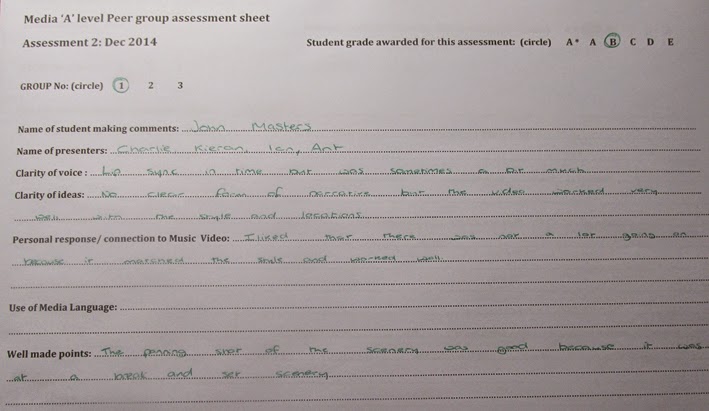 Media 'A' level Peer group assessment sheet
Assessment 2: Dec 2014
Student grade awarded for this assessment: (circle) A* A B C D E
GROUP No: (circle) 1 2 3
Name of student making comments: John Masters
Name of presenters: Charlie Kieran, Ian, Ant
Clarity of voice : Lip sync in time but was sometimes a bit much
Clarity of ideas: No clear form of narrative but the video worked very
well with the style and locations.
Personal response/ connection to Music Video: I liked that there was not a lot going on
because it matched the style and worked well.
Use of Media Language:
Well made points: The panning shot of the scenery was good because it was
at a break and set scenery